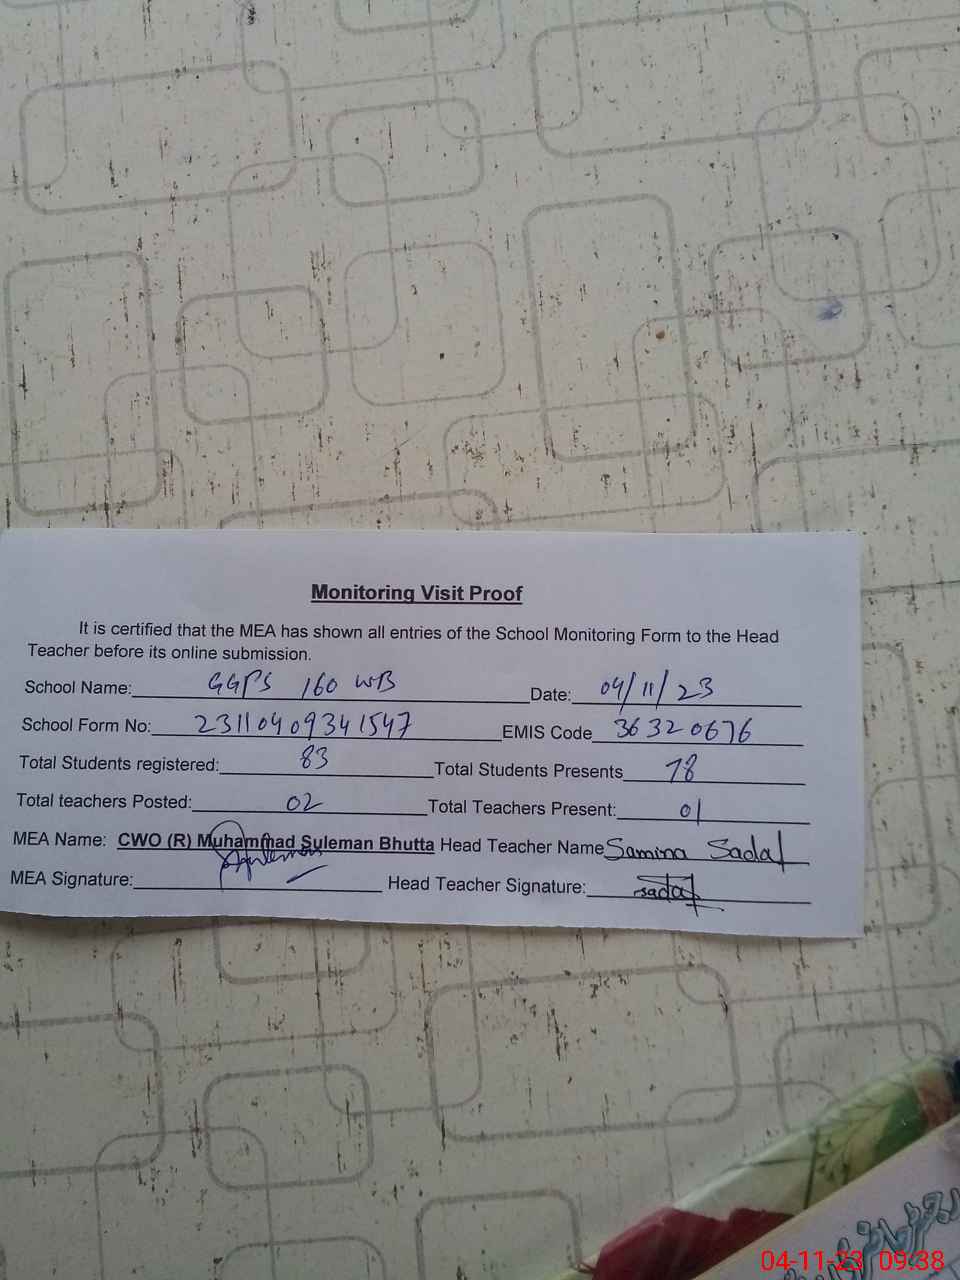 Monitoring Visit Proof
It is certified that the MEA has shown all entries of the School Monitoring Form to the Head
Teacher before its online submission.
School Name: GGPS 160 WB Date: 04/11/23
School Form No: 23110409341547 EMIS Code 36320676
Total Students registered: 83 Total Students Presents 78
Total teachers Posted: 02 Total Teachers Present: 01
MEA Name: CWO (R) Muhammad Suleman Bhutta Head Teacher Name Samina Sadaf
MEA Signature: Suleman Head Teacher Signature: sadaf
04-11-23 09:38